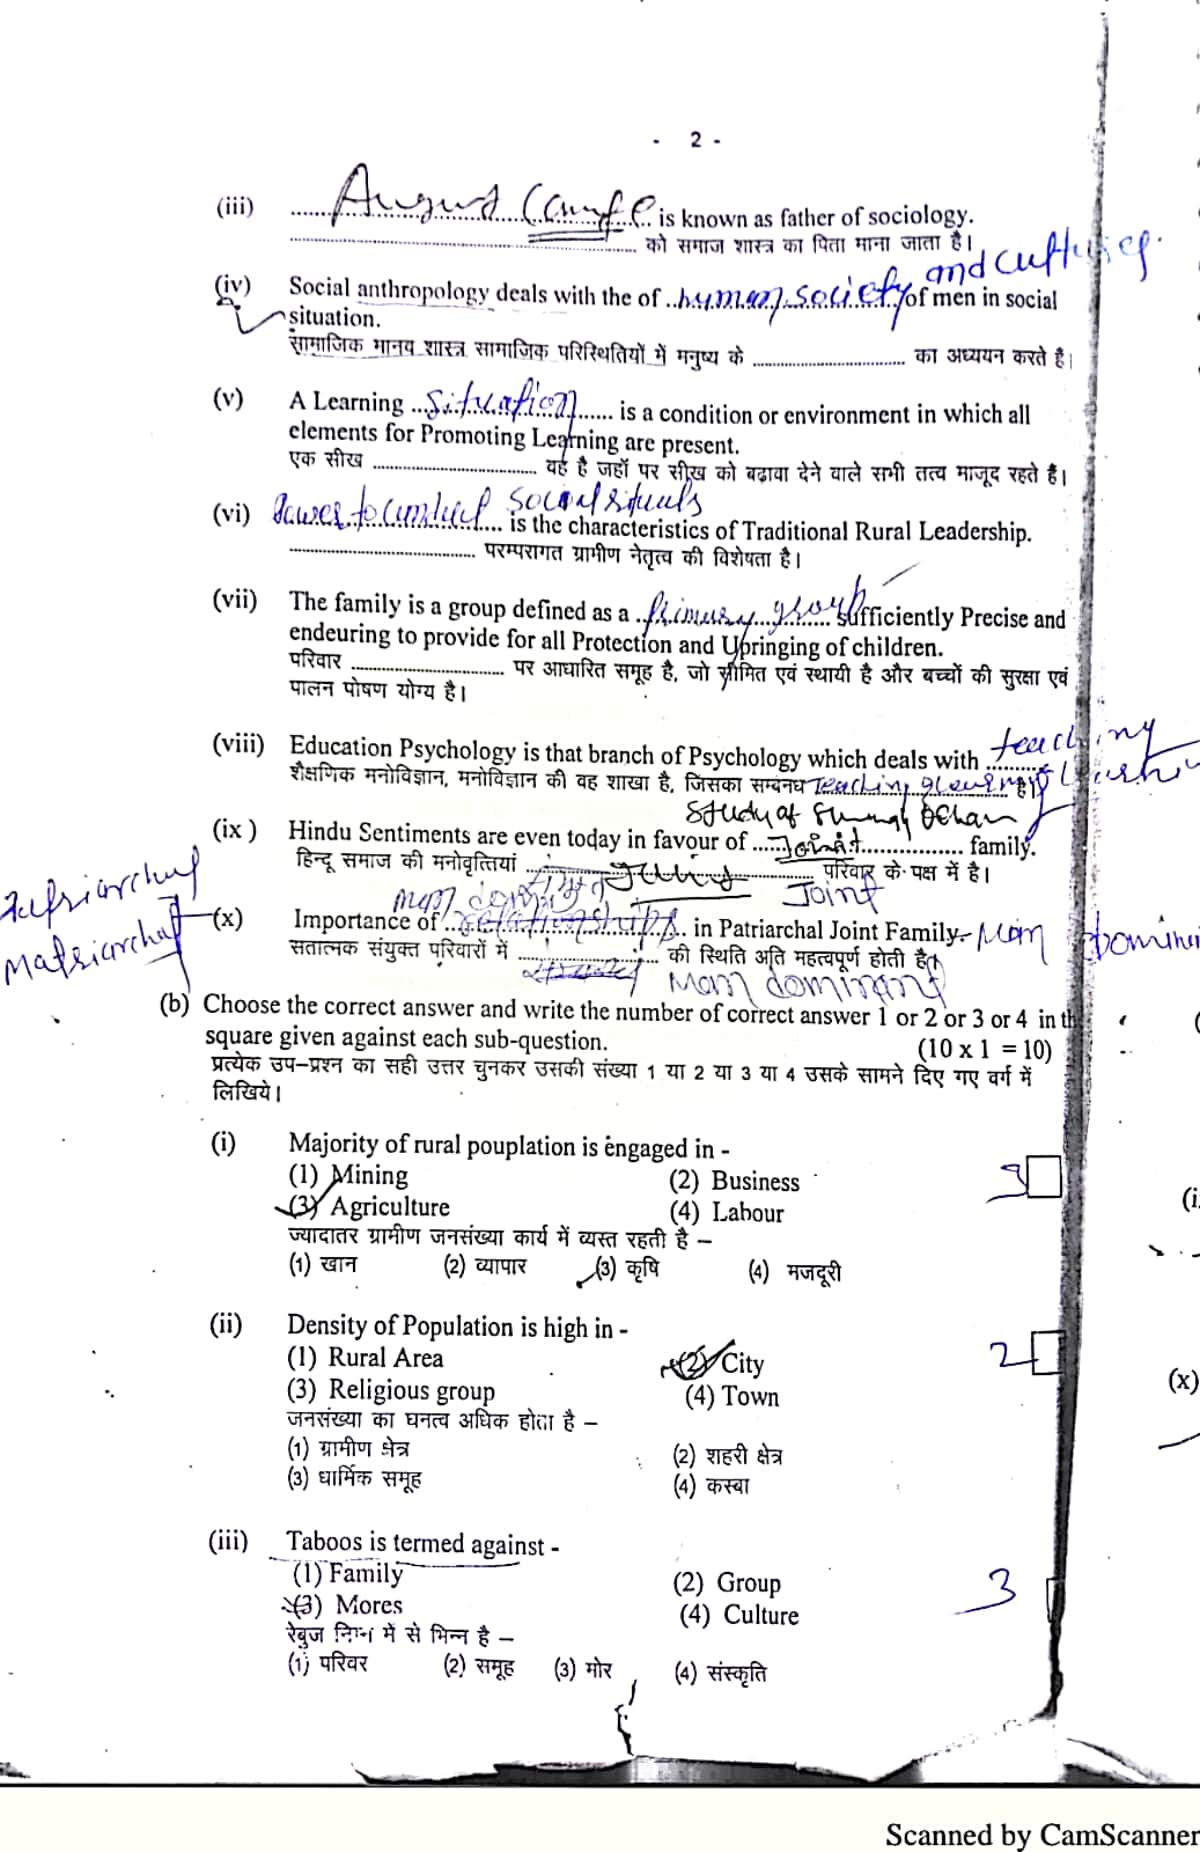 - 2 -
(iii) August Comte is known as father of sociology.
.................... को समाज शास्त्र का पिता माना जाता है।
and cultures
(iv) Social anthropology deals with the of ..human society..of men in social
situation.
सामाजिक मानव शास्त्र सामाजिक परिस्थितियों में मनुष्य के .................... का अध्ययन करते है।
(v) A Learning ...situation...... is a condition or environment in which all
elements for Promoting Learning are present.
एक सीख .................... वह है जहाँ पर सीख को बढावा देने वाले सभी तत्व माजूद रहते हैं।
(vi) Power to conduct social rituals is the characteristics of Traditional Rural Leadership.
.................... परम्परागत ग्रामीण नेतृत्व की विशेषता है।
(vii) The family is a group defined as a ..primary group.. sufficiently Precise and
endeuring to provide for all Protection and Upringing of children.
परिवार .................... पर आधारित समूह है, जो सीमित एवं स्थायी है और बच्चों की सुरक्षा एवं
पालन पोषण योग्य है।
(viii) Education Psychology is that branch of Psychology which deals with teaching
शैक्षणिक मनोविज्ञान, मनोविज्ञान की वह शाखा है, जिसका सम्बनध Teaching है।
Study of
(ix ) Hindu Sentiments are even today in favour of .....Joint............... family.
हिन्दू समाज की मनोवृत्तियां .................... परिवार के पक्ष में है।
Joint
Matriarchal
(x) Importance of ..relationships.. in Patriarchal Joint Family. Mom
सतात्मक संयुक्त परिवारों में .................... की स्थिति अति महत्वपूर्ण होती है।
Mom dominant
(b) Choose the correct answer and write the number of correct answer 1 or 2 or 3 or 4 in th
square given against each sub-question. (10 x 1 = 10)
प्रत्येक उप–प्रश्न का सही उत्तर चुनकर उसकी संख्या 1 या 2 या 3 या 4 उसके सामने दिए गए वर्ग में
लिखिये।
(i) Majority of rural pouplation is engaged in -
(1) Mining (2) Business 3
(3) Agriculture (4) Labour
ज्यादातर ग्रामीण जनसंख्या कार्य में व्यस्त रहती है –
(1) खान (2) व्यापार (3) कृषि (4) मजदूरी
(ii) Density of Population is high in -
(1) Rural Area (2) City 2
(3) Religious group (4) Town
जनसंख्या का घनत्व अधिक होता है –
(1) ग्रामीण क्षेत्र (2) शहरी क्षेत्र
(3) धार्मिक समूह (4) कस्बा
(iii) Taboos is termed against -
(1) Family (2) Group 3
(3) Mores (4) Culture
रेबुज निम्न में से भिन्न है –
(1) परिवर (2) समूह (3) मोर (4) संस्कृति
(x)
Scanned by CamScanner